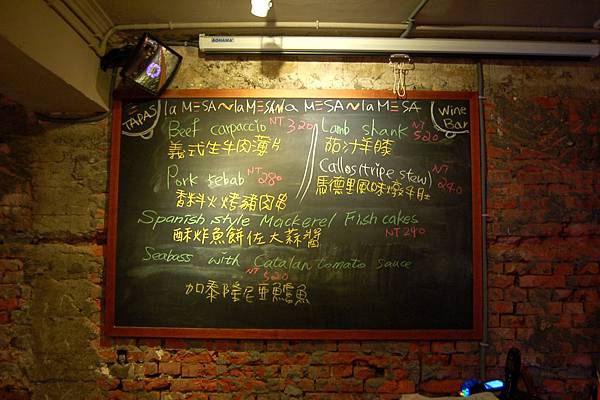 BOHAMA
TAPAS
la MESA la MESA la MESA la MESA
Wine Bar
Beef carpaccio NT 320
義式生牛肉薄片
Lamb shank NT 520
茄汁羊膝
Pork kebab NT 280
香料火烤豬肉串
Callos (tripe stew) NT 240
馬德里風味燉牛肚
Spanish style Mackerel Fish cakes
酥炸魚餅佐大蒜醬 NT 240
Seabass with Catalan tomato sauce
NT 520
加泰隆尼亞鱸魚